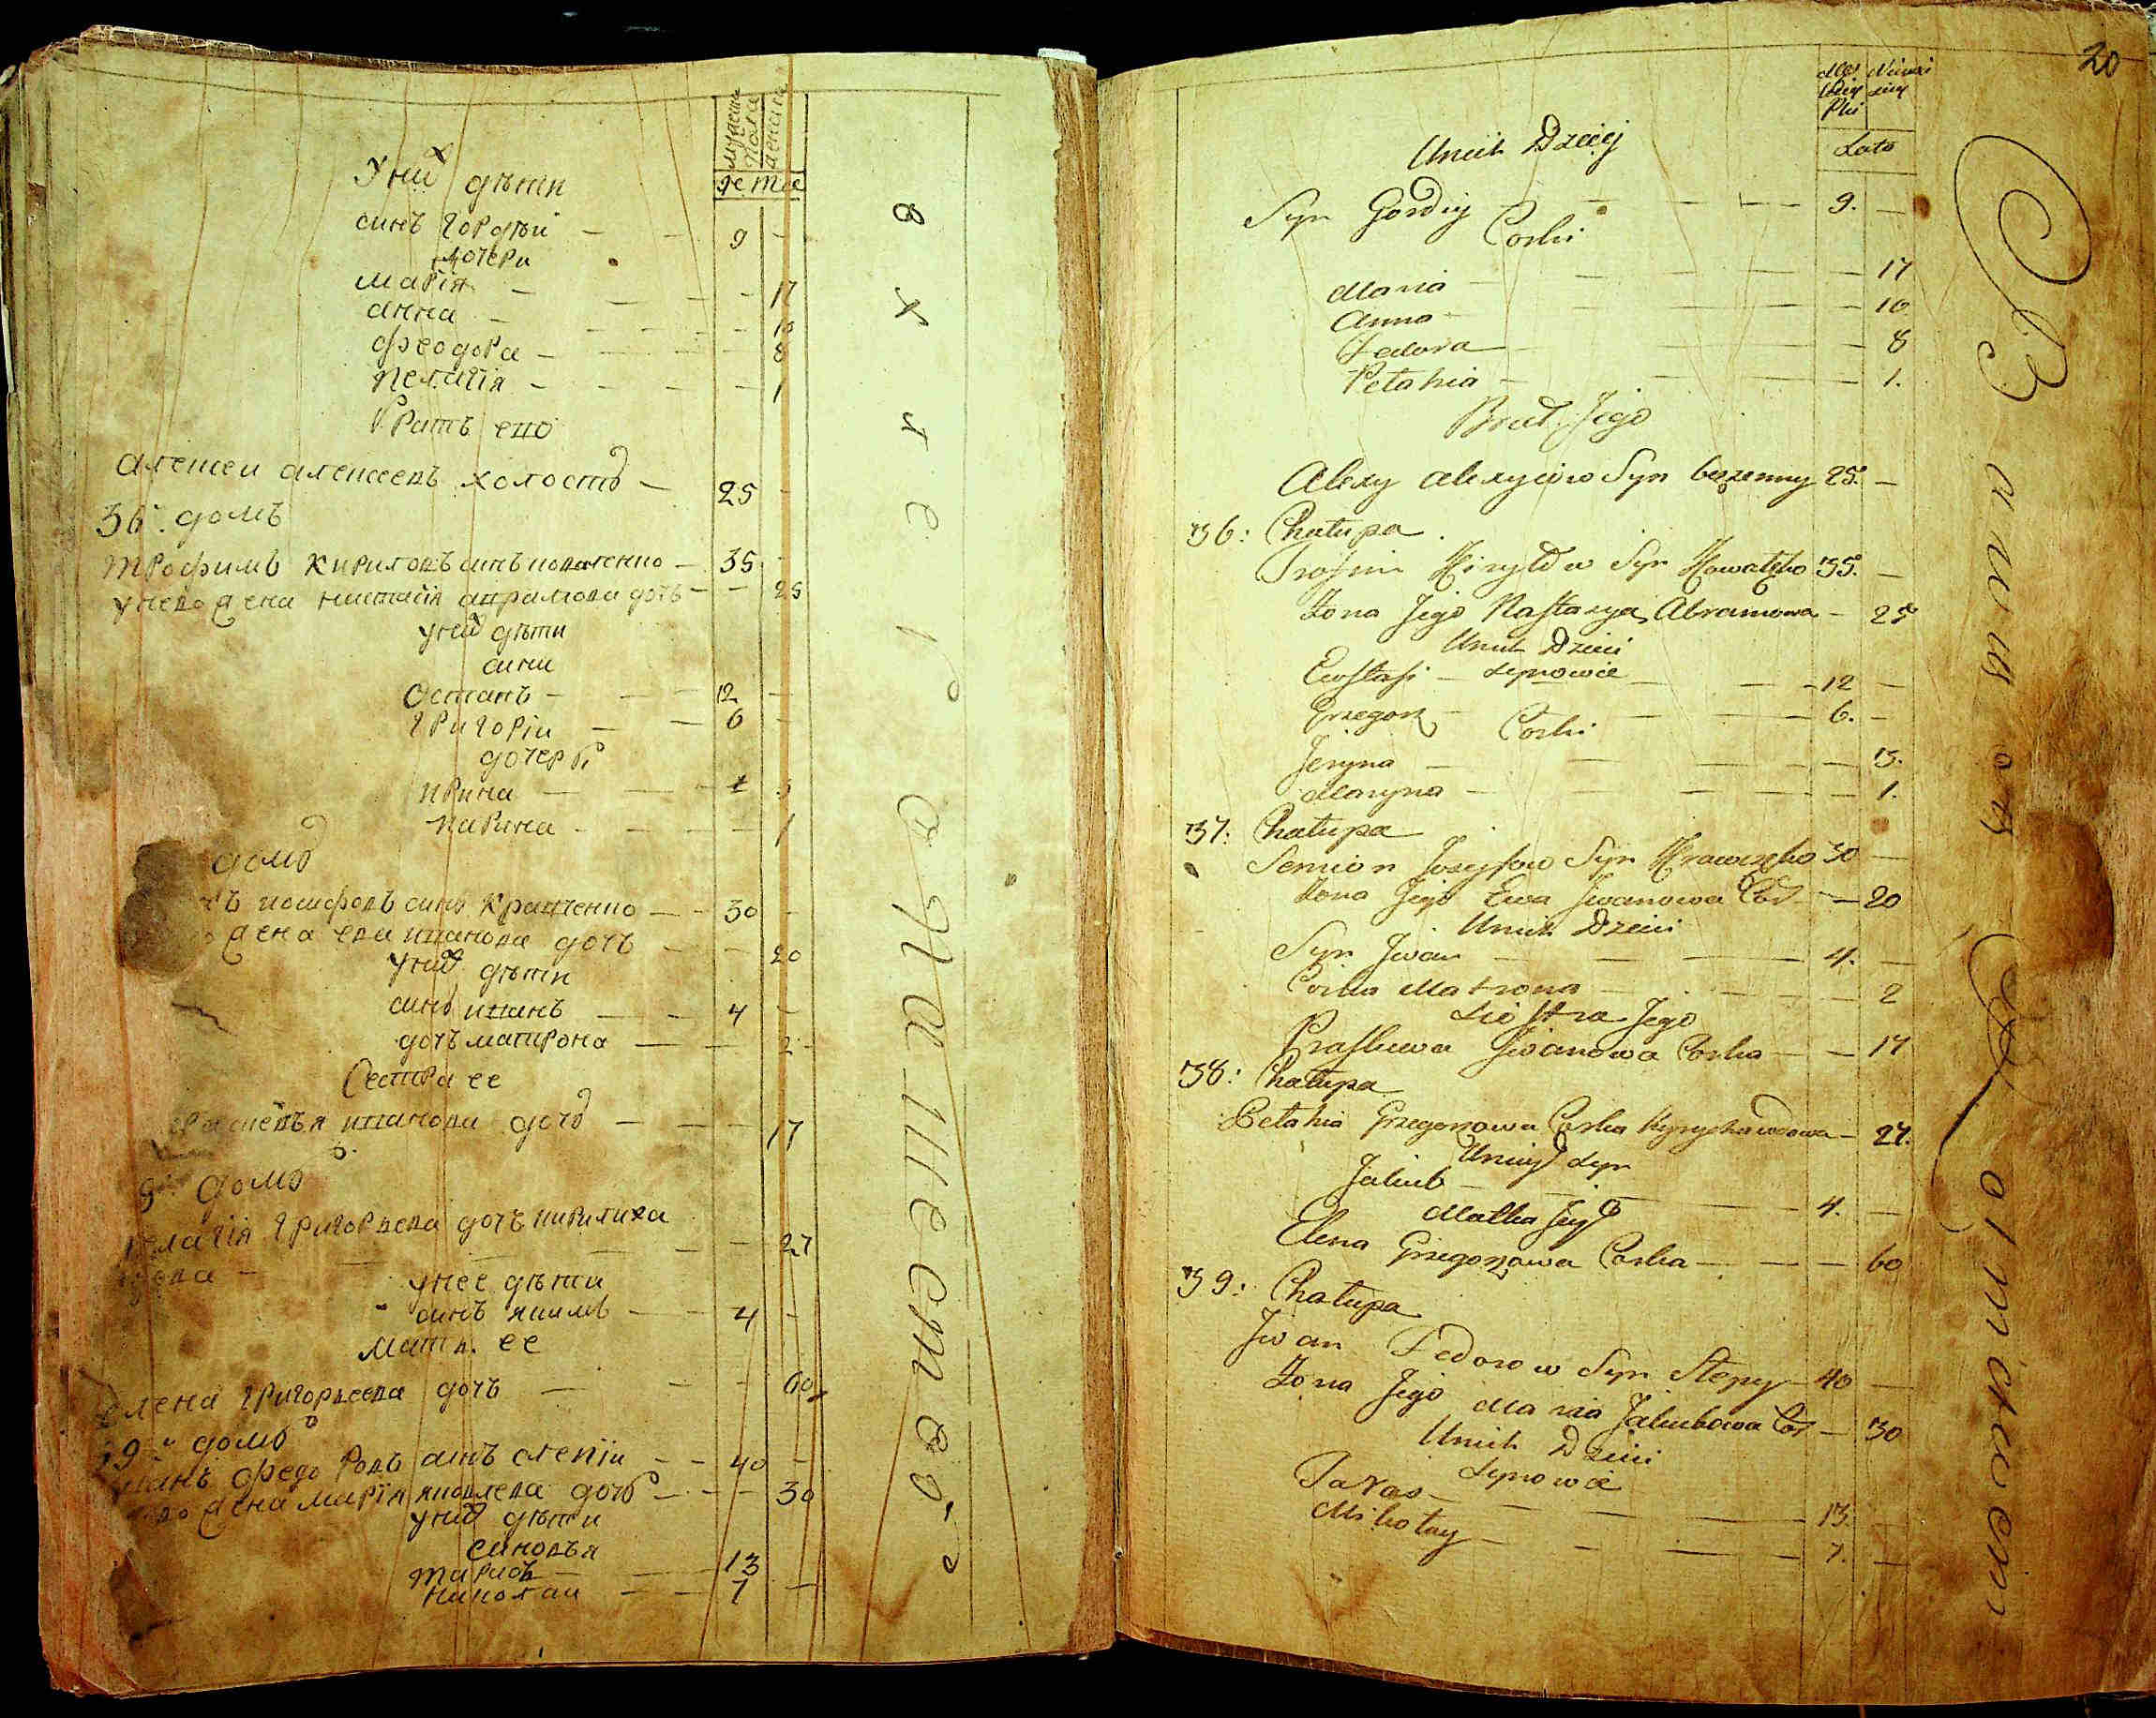 мужеска
пола
женска
лета
У них дѣти
синъ гордѣй — 9 —
дочери
марія — 17
анна — 10
феодора — 8
пелагія — 1
братъ его
алексеи алексеевъ холостъ — 25 —
36. домъ
трофимъ кириловъ синъ коваленко — 35 —
унего жена настасія аврамова дочъ — 25
у них дѣти
сини
Остапъ — 12 —
григоріи — 6 —
дочери
ирина — 3
марина — 1
домъ
иосифовъ синъ кравченко — 30 —
жена ева иванова дочъ — 20
у них дѣти
синъ иванъ — 4 —
дочъ матрона — 2
Сестра ее
иванова дочъ — 17
домъ
григорьева дочъ кирилиха
— 27
у нее дѣти
синъ якимъ — 4 —
мать ее
елена григорьева дочъ — 60
домъ
федоровъ синъ слепіи — 40 —
жена марія яковлева дочъ — 30
у них дѣти
синовья
тарасъ — 13
николаи — 7 —
20
Lata
Unich Dzieci
Syn Gordiy — 9. —
Corki
Maria — 17
Anna — 10
Fedora — 8
Pelahia — 1.
Brat Jego
Alexy Alexyiow Syn bezzenny 25. —
36: Chałupa
Trofim Kiryłow Syn Kowalenko 35. —
Zona Jego Nastazya Abramowa — 25
Unich Dzieci
Eustafi — synowie — 12 —
Grzegorz — 6. —
Corki
Jeryna — 3.
Maryna — 1.
37: Chałupa
Semion Jozefow Syn Krawczenko 30 —
Zona Jego Ewa Jwanowa Cor — 20
Unich Dzieci
Syn Jwan — 4. —
Corka Matrona — 2
Siostra Jego
Praskewa Jwanowa Corka — 17
38: Chałupa
Pelahia Grzegorzowa Corka Kyrychawdowa — 27.
Uniey syn
Jakub — 4. —
Matka Jey
Elena Grzegorzowa Corka — 60
39: Chałupa
Jwan Fedorow Syn Slepy — 40 —
Zona Jego Maria Jakubowa Cor — 30
Unich Dzieci
synowie
Taras — 13. —
Mikołay — 7. —